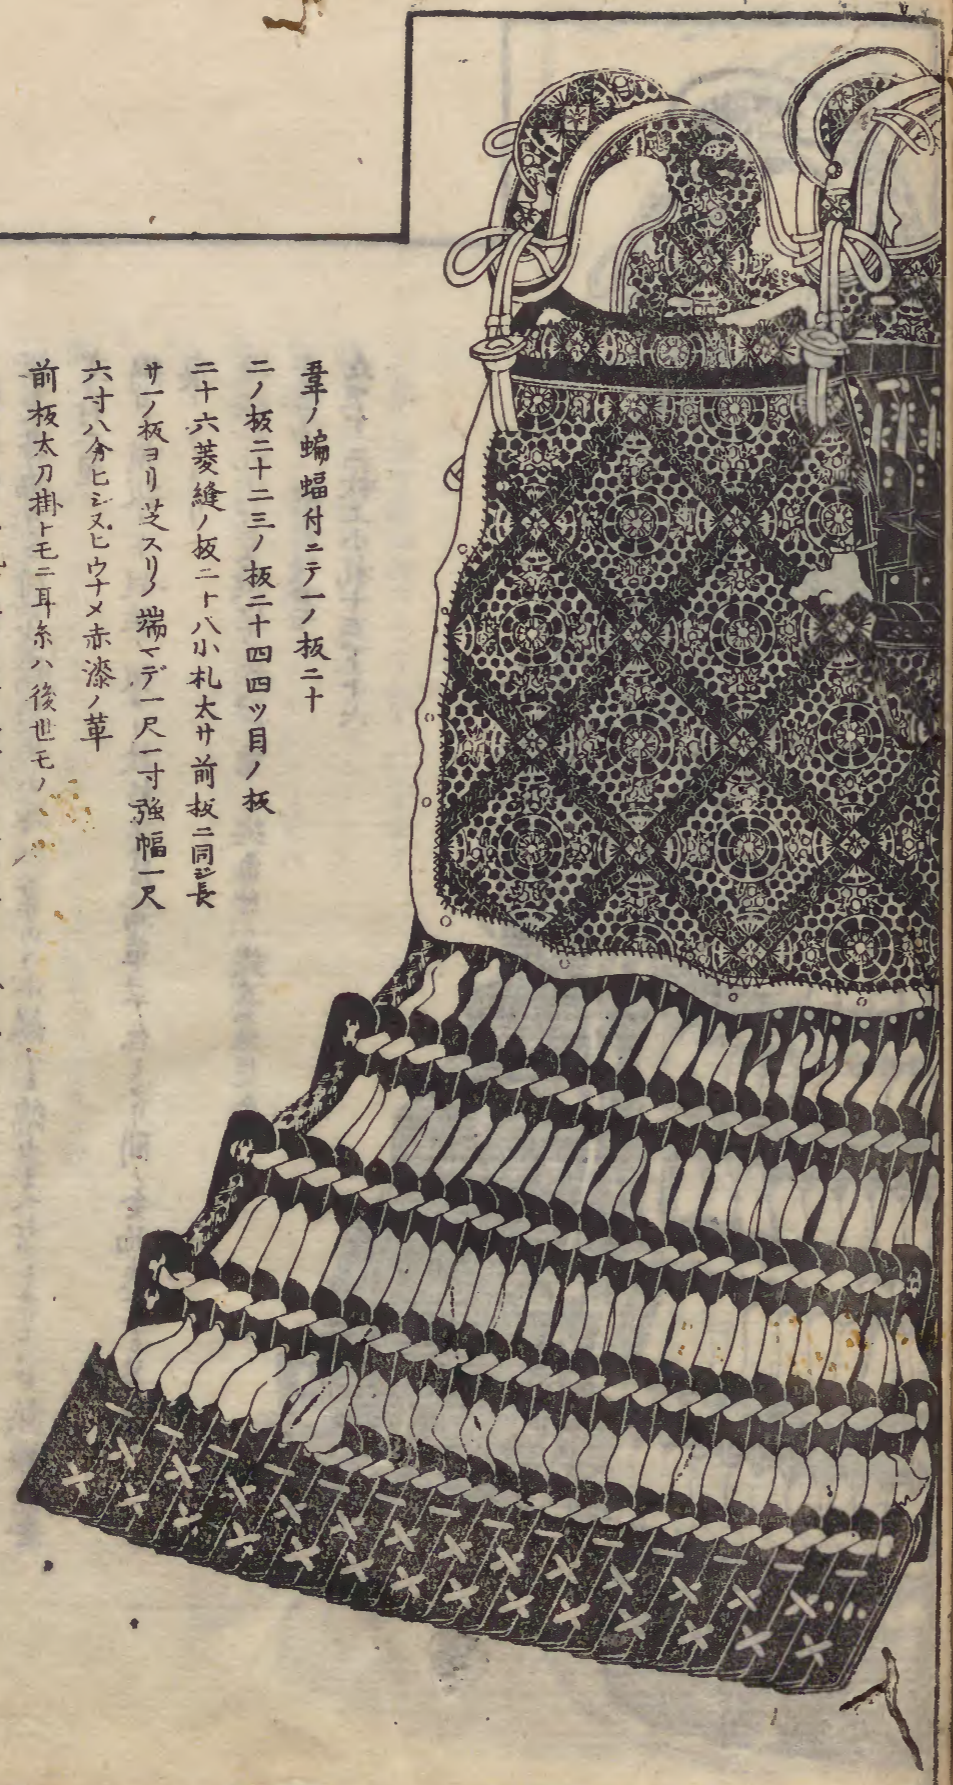 韋ノ蝙蝠付ニテ一ノ板二十
二ノ板二十二三ノ板二十四四ツ目ノ板
二十六菱縫ノ板二十八小札太サ前板ニ同シ長
サ一ノ板ヨリ芝スリノ端マデ一尺一寸強幅一尺
六寸八分ヒシヌヒウナメ赤漆ノ革
前板太刀掛トモニ耳糸ハ後世モノ